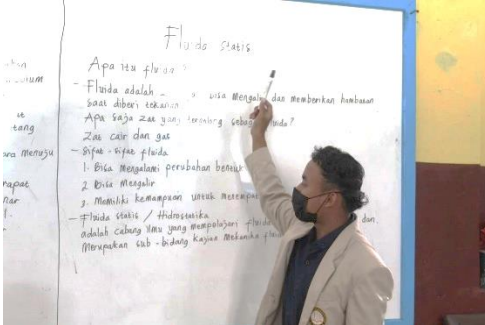 Fluida Statis
Apa itu fluida ?
- Fluida adalah bisa mengalir dan memberikan hambatan
saat diberi tekanan
Apa saja zat yang tergolong sebagai fluida?
Zat cair dan gas
- Sifat - sifat fluida
1. Bisa Mengalami perubahan bentuk
2. Bisa Mengalir
3. Memiliki kemampuan untuk menempati
- Fluida statis / Hidrostatika
adalah cabang ilmu yang mempelajari fluida dan
Merupakan sub - bidang kajian Mekanika
tang
ara menuju
rapat